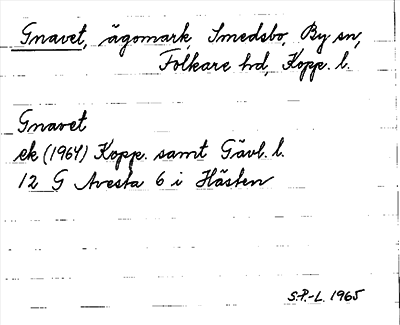 Gnavet, ägomark, Smedsbo, By sn,
Folkare hd, Kopp. l.
Gnavet
ek (1964) Kopp. samt Gävl. l.
12 G Avesta 6 i Hästen
S.P.-L. 1965